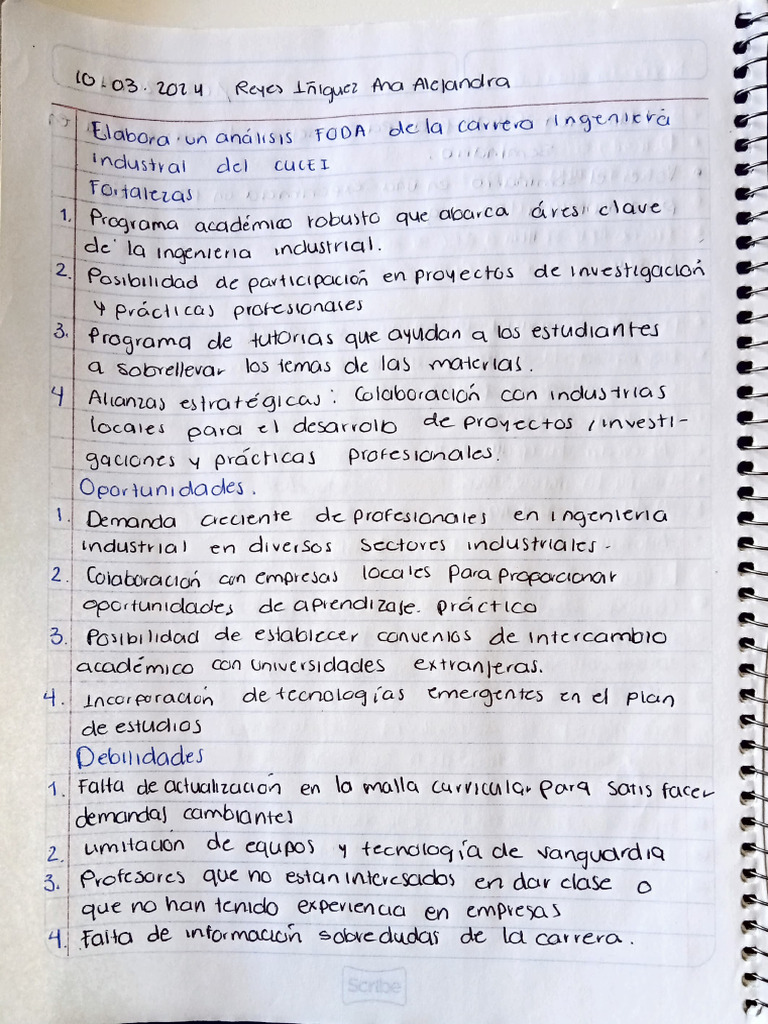 10-03-2024 Reyes Iñiguez Ana Alejandra
Elabora un análisis FODA de la carrera ingeniería
industrial del CUCEI
Fortalezas
1. Programa académico robusto que abarca áres clave
de la ingenieria industrial.
2. Posibilidad de participación en proyectos de investigación
y prácticas profesionales
3. Programa de tutorias que ayudan a los estudiantes
a sobrellevar los temas de las materias.
4 Alianzas estratégicas: Colaboración con industrias
locales para el desarrollo de proyectos, investi-
gaciones y prácticas profesionales.
Oportunidades.
1. Demanda creciente de profesionales en ingenieria
industrial en diversos sectores industriales.
2. Colaboración con empresas locales para proporcionar
oportunidades de aprendizaje práctico
3. Posibilidad de establecer convenios de intercambio
académico con universidades extranjeras.
4. Incorporación de tecnologías emergentes en el plan
de estudios
Debilidades
1. Falta de actualización en la malla curricular para satisfacer
demandas cambiantes
2. Limitación de equipos y tecnología de vanguardia
3. Profesores que no estan interesados en dar clase o
que no han tenido experiencia en empresas
4. Falta de información sobre dudas de la carrera.
Scribe